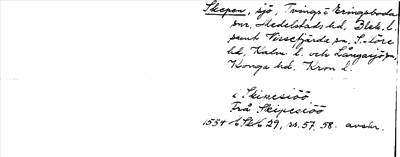 Skepen, sjö, Tvings o Eringsboda
snr, Medelstads hd, Blek. l.
samt Vissefjärda sn, S. Möre
hd, Kalm. l. och Långasjö sn,
Konga hd, Kron. l.
i Skipesiöö
Frå Skipesiöö
1554 29, nr. 57, 58. avskr.